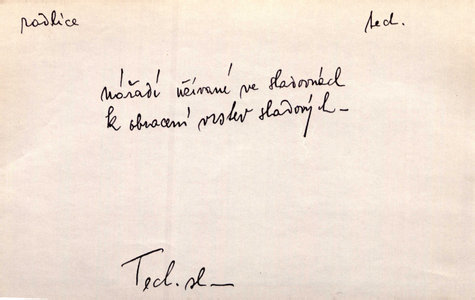 radlice tech.
nářadí užívané ve sladovnách
k obracení vrstev sladových –
Tech. sl –